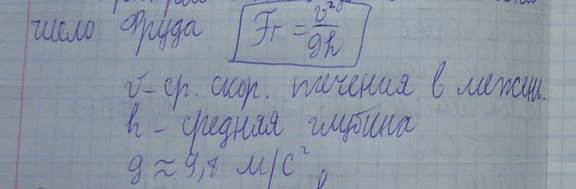 число Фруда Fr = v²/gh
v - ср. скор. течения в межень.
h - средняя глубина
g ≈ 9,8 м/с²